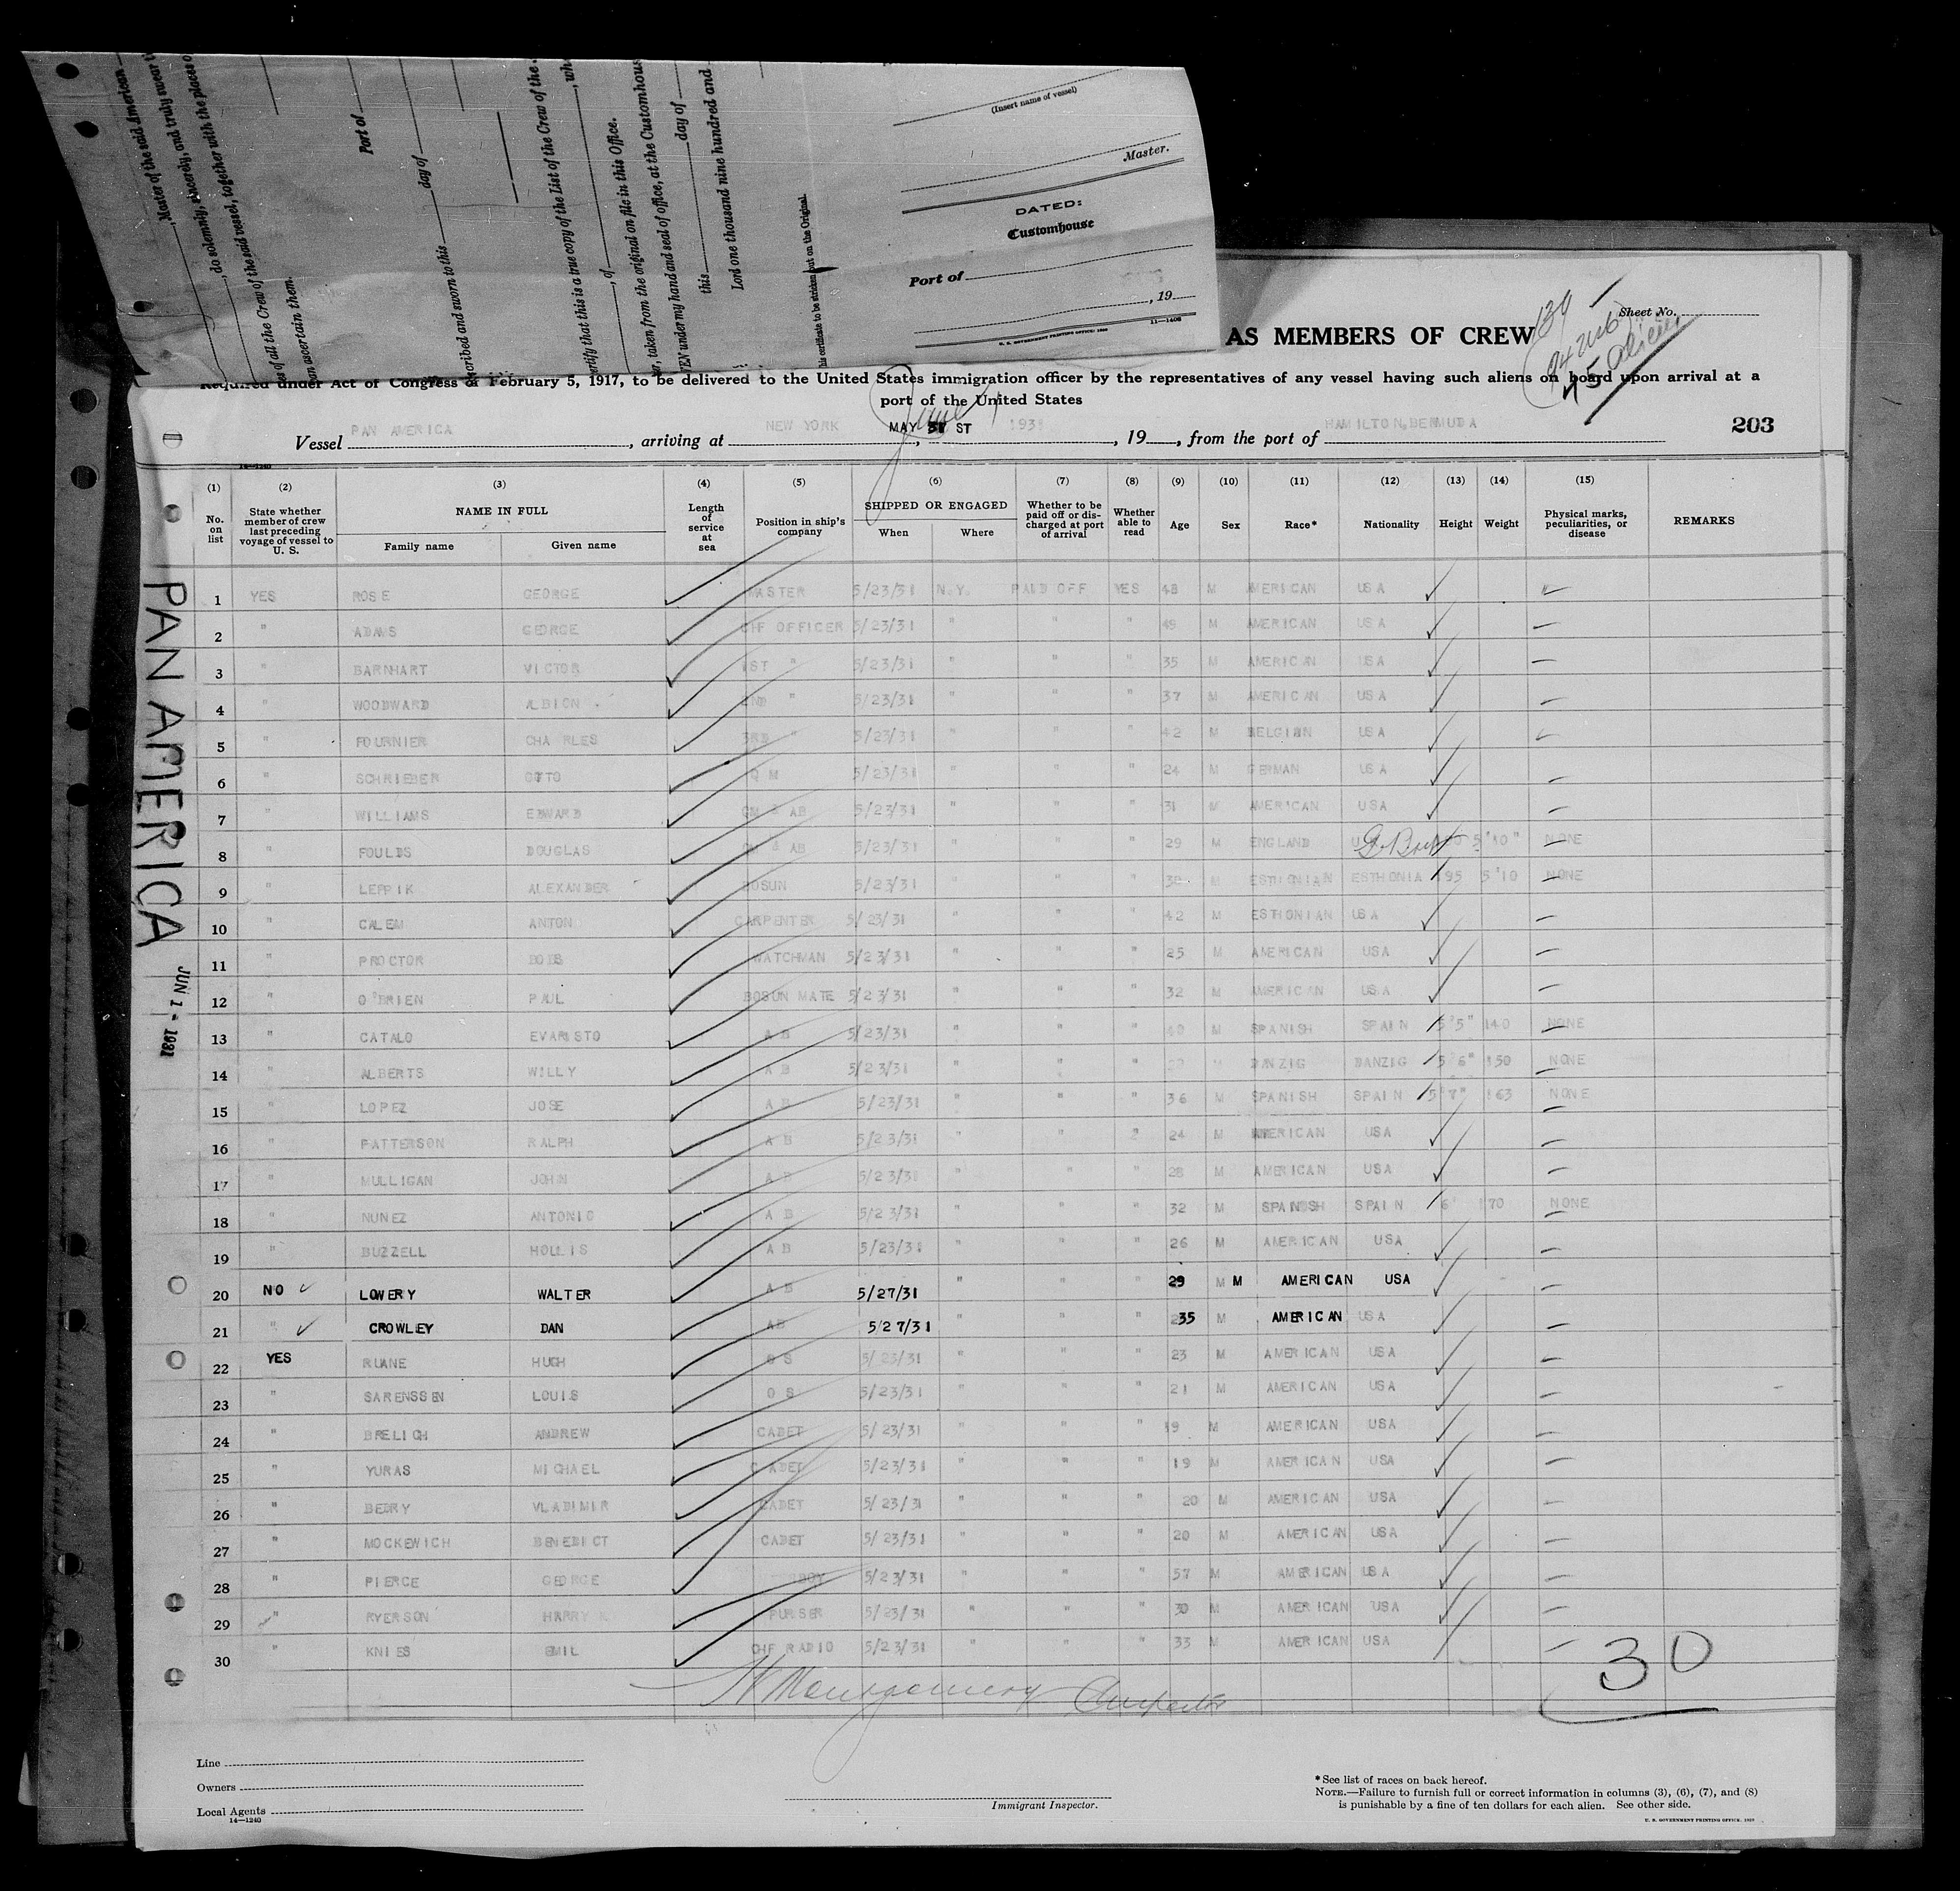 , Master of the said American
, do solemnly, sincerely, and truly swear
of the said vessel, together with the places o
es of all the Crew of
an ascertain them.
Port of
day of
scribed and sworn to this
ertify that this is a true copy of the List of the Crew of the
, of
, taken from the original on file in this Office.
EN under my hand and seal of office, at the Customhous
day of
this
Lord one thousand nine hundred and
his certificate to be stricken out on the Original.
(Insert name of vessel)
Master.
DATED:
Customhouse
Port of
, 19
U. S. GOVERNMENT PRINTING OFFICE: 1930 11—1406
AS MEMBERS OF CREW
Sheet No.
139
94 US
45 alien
Required under Act of Congress of February 5, 1917, to be delivered to the United States immigration officer by the representatives of any vessel having such aliens on board upon arrival at a
port of the United States
Vessel PAN AMERICA, arriving at NEW YORK MAY 31 ST June 1 1931, 19, from the port of HAMILTON, BERMUDA
203
14—1240
(1) (2) (3) (4) (5) (6) (7) (8) (9) (10) (11) (12) (13) (14) (15)
No. on list
State whether member of crew last preceding voyage of vessel to U. S.
NAME IN FULL
Family name Given name
Length of service at sea
Position in ship's company
SHIPPED OR ENGAGED
When Where
Whether to be paid off or discharged at port of arrival
Whether able to read
Age Sex Race* Nationality Height Weight
Physical marks, peculiarities, or disease
REMARKS
1 YES ROSE GEORGE MASTER 5/23/31 N.Y. PAID OFF YES 48 M AMERICAN USA
2 " ADAMS GEORGE CHF OFFICER 5/23/31 " " " 49 M AMERICAN USA
3 " BARNHART VICTOR 1ST " 5/23/31 " " " 35 M AMERICAN USA
4 " WOODWARD ALBION 2ND " 5/23/31 " " " 37 M AMERICAN USA
5 " FOURNIER CHARLES 3RD " 5/23/31 " " " 42 M BELGIAN USA
6 " SCHRIEBER OTTO Q M 5/23/31 " " " 24 M GERMAN USA
7 " WILLIAMS EDWARD QM & AB 5/23/31 " " " 31 M AMERICAN USA
8 " FOULDS DOUGLAS QM & AB 5/23/31 " " " 29 M ENGLAND G. Brit 5'10" NONE
9 " LEPPIK ALEXANDER BOSUN 5/23/31 " " " 38 M ESTHONIAN ESTHONIA 195 5'10 NONE
10 " CALEM ANTON CARPENTER 5/23/31 " " " 42 M ESTHONIAN USA
11 " PROCTOR BOB WATCHMAN 5/23/31 " " " 25 M AMERICAN USA
12 " O'BRIEN PAUL BOSUN MATE 5/23/31 " " " 32 M AMERICAN USA
13 " CATALO EVARISTO A B 5/23/31 " " " 40 M SPANISH SPAIN 5'5" 140 NONE
14 " ALBERTS WILLY A B 5/23/31 " " " M DANZIG DANZIG 5'6" 150 NONE
15 " LOPEZ JOSE A B 5/23/31 " " " 36 M SPANISH SPAIN 5'7" 163 NONE
16 " PATTERSON RALPH A B 5/23/31 " " " 24 M AMERICAN USA
17 " MULLIGAN JOHN A B 5/23/31 " " " 28 M AMERICAN USA
18 " NUNEZ ANTONIO A B 5/23/31 " " " 32 M SPANISH SPAIN 6' 170 NONE
19 " BUZZELL HOLLIS A B 5/23/31 " " " 26 M AMERICAN USA
20 NO LOWERY WALTER A B 5/27/31 " " " 29 M M AMERICAN USA
21 " CROWLEY DAN AB 5/27/31 " " " 35 M AMERICAN USA
22 YES RUANE HUGH O S 5/23/31 " " " 23 M AMERICAN USA
23 " SARENSSEN LOUIS O S 5/23/31 " " " 21 M AMERICAN USA
24 " BRELICH ANDREW CADET 5/23/31 " " " 19 M AMERICAN USA
25 " YURAS MICHAEL CADET 5/23/31 " " " 19 M AMERICAN USA
26 " BEDRY VLADIMIR CADET 5/23/31 " " " 20 M AMERICAN USA
27 " MOCKEWICH BENEDICT CADET 5/23/31 " " " 20 M AMERICAN USA
28 " PIERCE GEORGE 5/23/31 " " " 57 M AMERICAN USA
29 " RYERSON HARRY PURSER 5/23/31 " " " 30 M AMERICAN USA
30 " KNIES EMIL CHF RADIO 5/23/31 " " " 33 M AMERICAN USA
30
Montgomery Inspector
PAN AMERICA
JUN 1 - 1931
Line
Owners
Local Agents
14—1240
Immigrant Inspector.
* See list of races on back hereof.
NOTE.—Failure to furnish full or correct information in columns (3), (6), (7), and (8)
is punishable by a fine of ten dollars for each alien. See other side.
U. S. GOVERNMENT PRINTING OFFICE: 1929